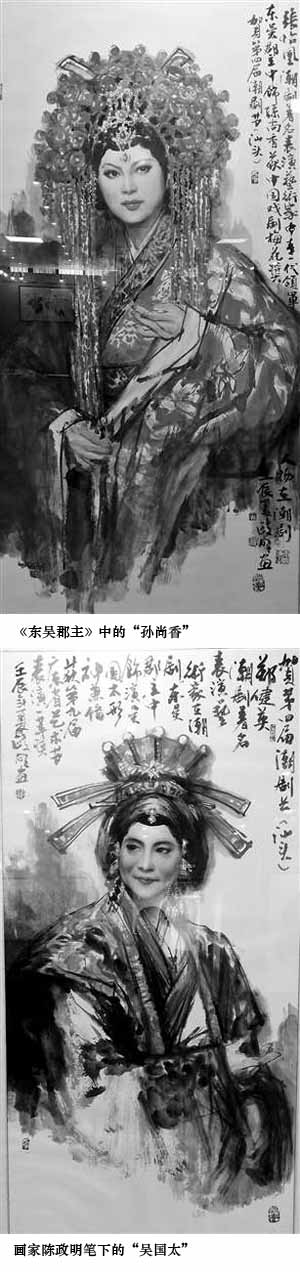 張怡凰潮劇著名表演藝術家中青一代領軍
東吳郡主中飾孫尚香获中国戏剧梅花奖
贺第四届潮剧节(汕头)
人物在潮剧
壬辰 政明画
《东吴郡主》中的“孙尚香”
贺第四届潮剧节(汕头)
郑健英
潮剧著名
表演藝
術家在潮
剧東吴
郡主中
飾演吴
國太形
神兼備
获第 届
广东省艺术节
表演一等奖
壬辰 政明画
画家陈政明笔下的“吴国太”